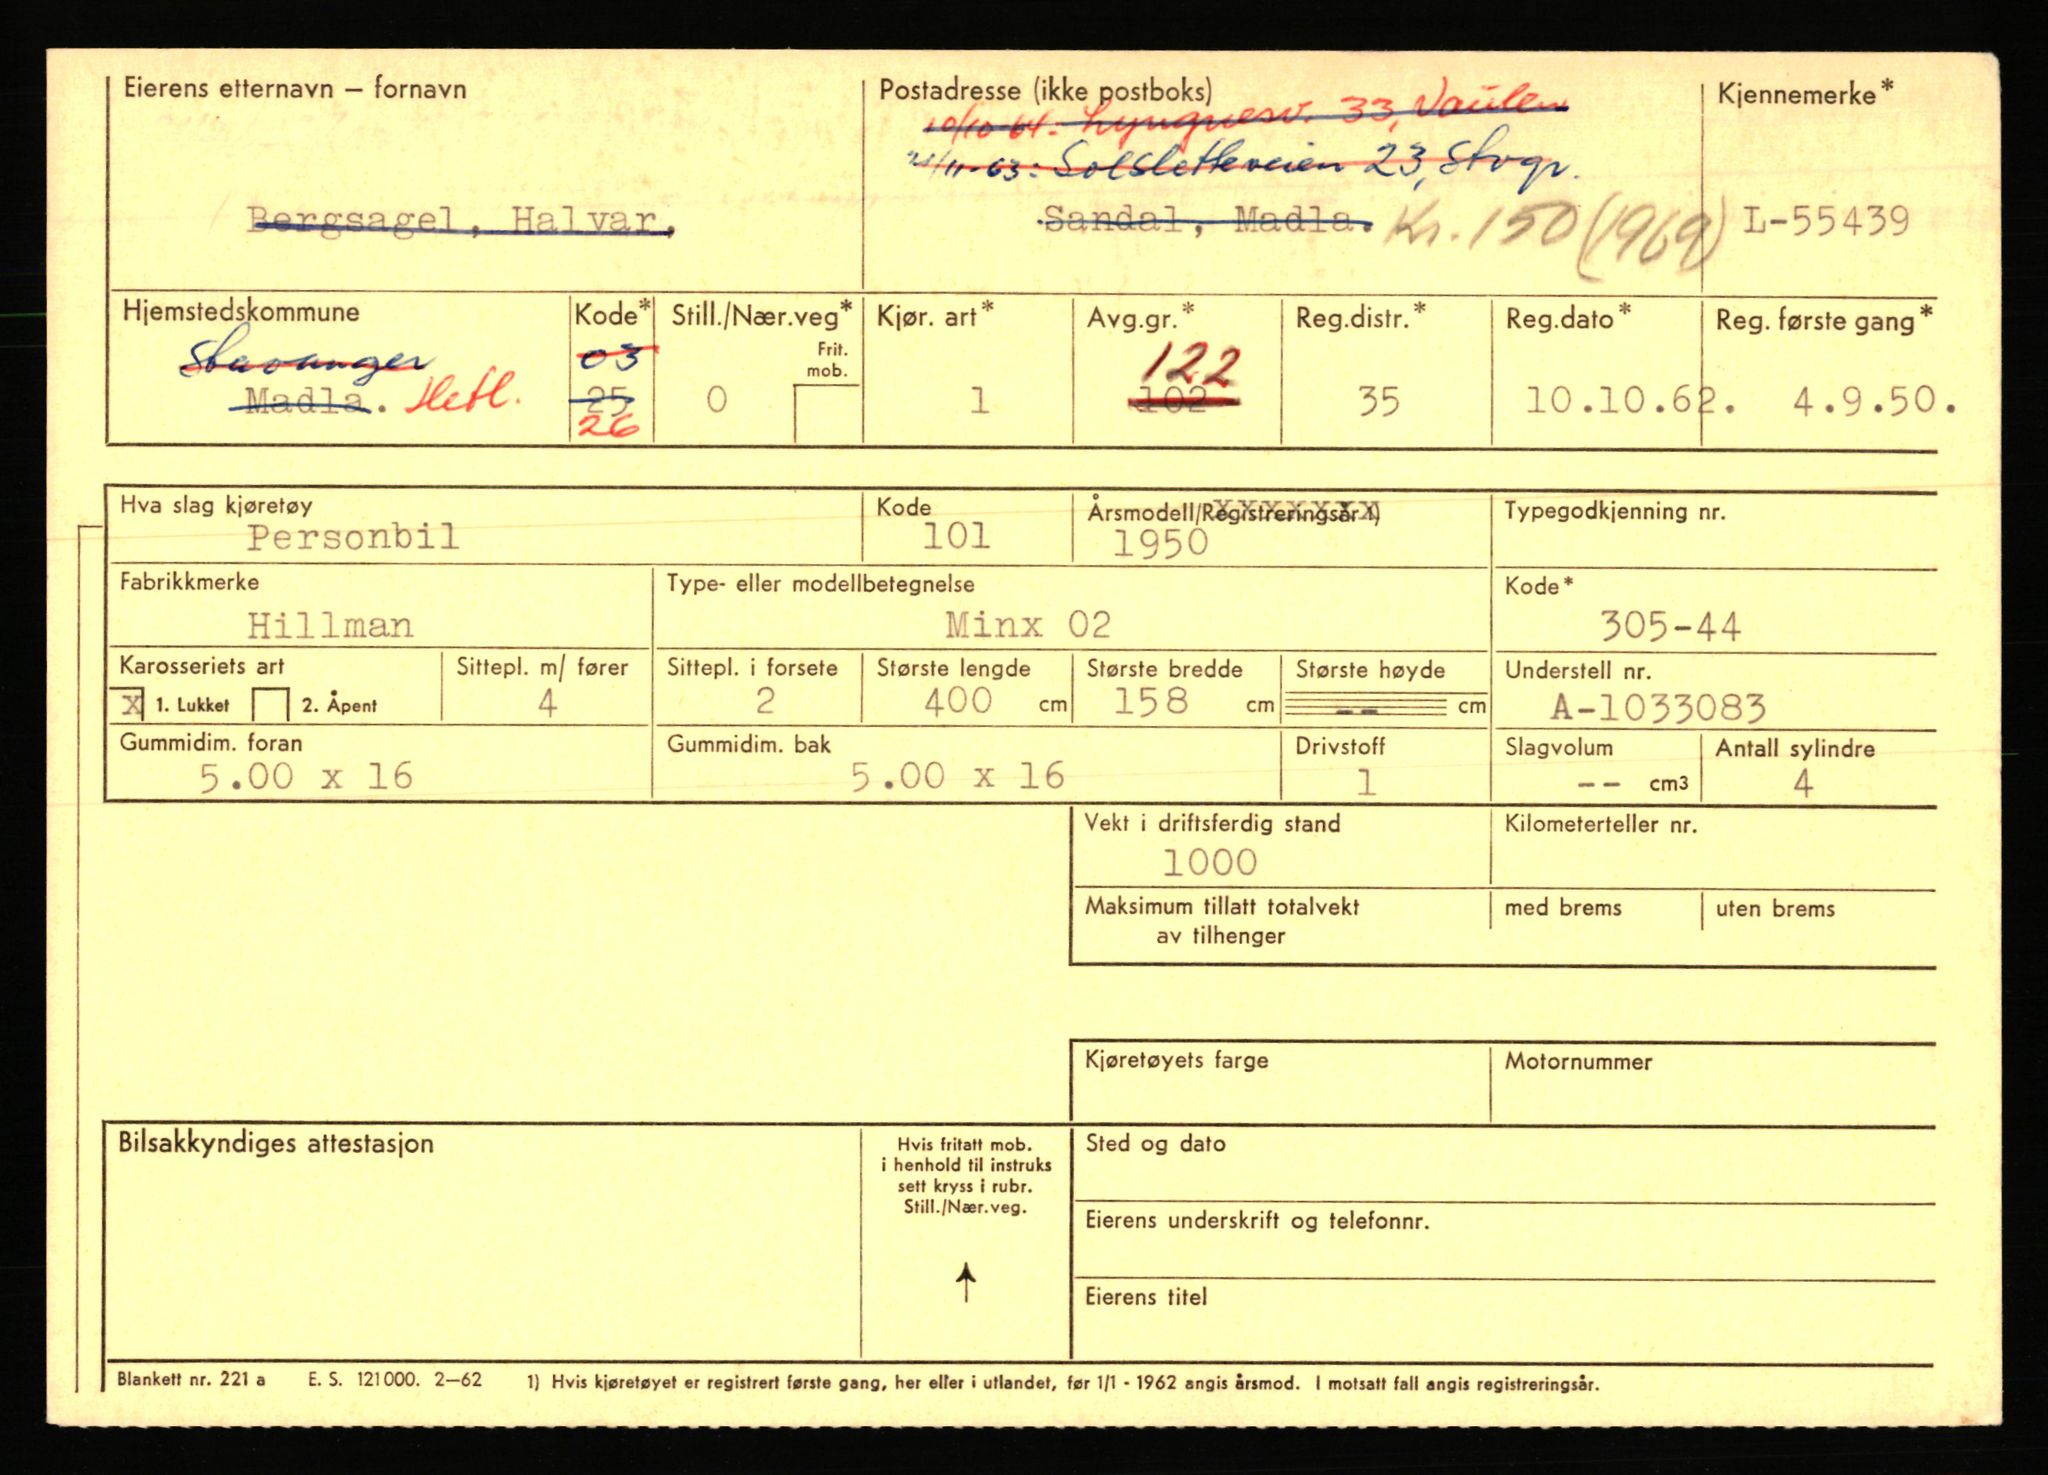 Eierens etternavn – fornavn
Postadresse (ikke postboks)
Kjennemerke*
10/10-64: Lyngnesv. 33, Vaulen
/11-63: Solsletteveien 23, Stvgr.
Bergsagel, Halvar,
Sandal, Madla. Kr. 150 (1969)
L-55439
Hjemstedskommune
Kode*
Still./Nær.veg*
Kjør. art*
Avg.gr.*
Reg.distr.*
Reg.dato*
Reg. første gang*
Stavanger
03
Frit.
mob.
122
Madla. Hetl.
25
0
1
102
35
10.10.62.
4.9.50.
26
Hva slag kjøretøy
Kode
Årsmodell/Registreringsår 1)
Typegodkjenning nr.
Personbil
101
1950
Fabrikkmerke
Type- eller modellbetegnelse
Kode*
Hillman
Minx 02
305-44
Karosseriets art
Sittepl. m/ fører
Sittepl. i forsete
Største lengde
Største bredde
Største høyde
Understell nr.
x 1. Lukket
2. Åpent
4
2
400 cm
158 cm
-- cm
A-1033083
Gummidim. foran
Gummidim. bak
Drivstoff
Slagvolum
Antall sylindre
5.00 x 16
5.00 x 16
1
-- cm3
4
Vekt i driftsferdig stand
Kilometerteller nr.
1000
Maksimum tillatt totalvekt
av tilhenger
med brems
uten brems
Kjøretøyets farge
Motornummer
Bilsakkyndiges attestasjon
Hvis fritatt mob.
i henhold til instruks
sett kryss i rubr.
Still./Nær.veg.
Sted og dato
Eierens underskrift og telefonnr.
Eierens titel
Blankett nr. 221 a E. S. 121000. 2–62 1) Hvis kjøretøyet er registrert første gang, her eller i utlandet, før 1/1 - 1962 angis årsmod. I motsatt fall angis registreringsår.